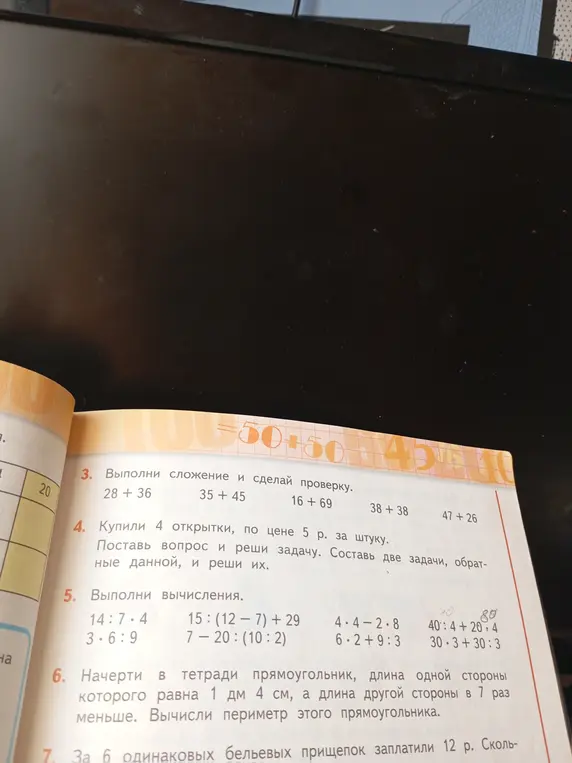 =50+50
45
20
3. Выполни сложение и сделай проверку.
28 + 36 35 + 45 16 + 69 38 + 38 47 + 26
4. Купили 4 открытки, по цене 5 р. за штуку.
Поставь вопрос и реши задачу. Составь две задачи, обрат-
ные данной, и реши их.
5. Выполни вычисления.
14 : 7 · 4 15 : (12 − 7) + 29 4 · 4 − 2 · 8 40 : 4 + 20 · 4
80
3 · 6 : 9 7 − 20 : (10 : 2) 6 · 2 + 9 : 3 30 · 3 + 30 : 3
на
6. Начерти в тетради прямоугольник, длина одной стороны
которого равна 1 дм 4 см, а длина другой стороны в 7 раз
меньше. Вычисли периметр этого прямоугольника.
7. За 6 одинаковых бельевых прищепок заплатили 12 р. Сколь-